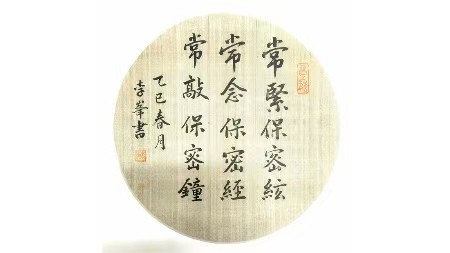 常緊保密絃
常念保密經
常敲保密鐘
乙巳春月
李峯書